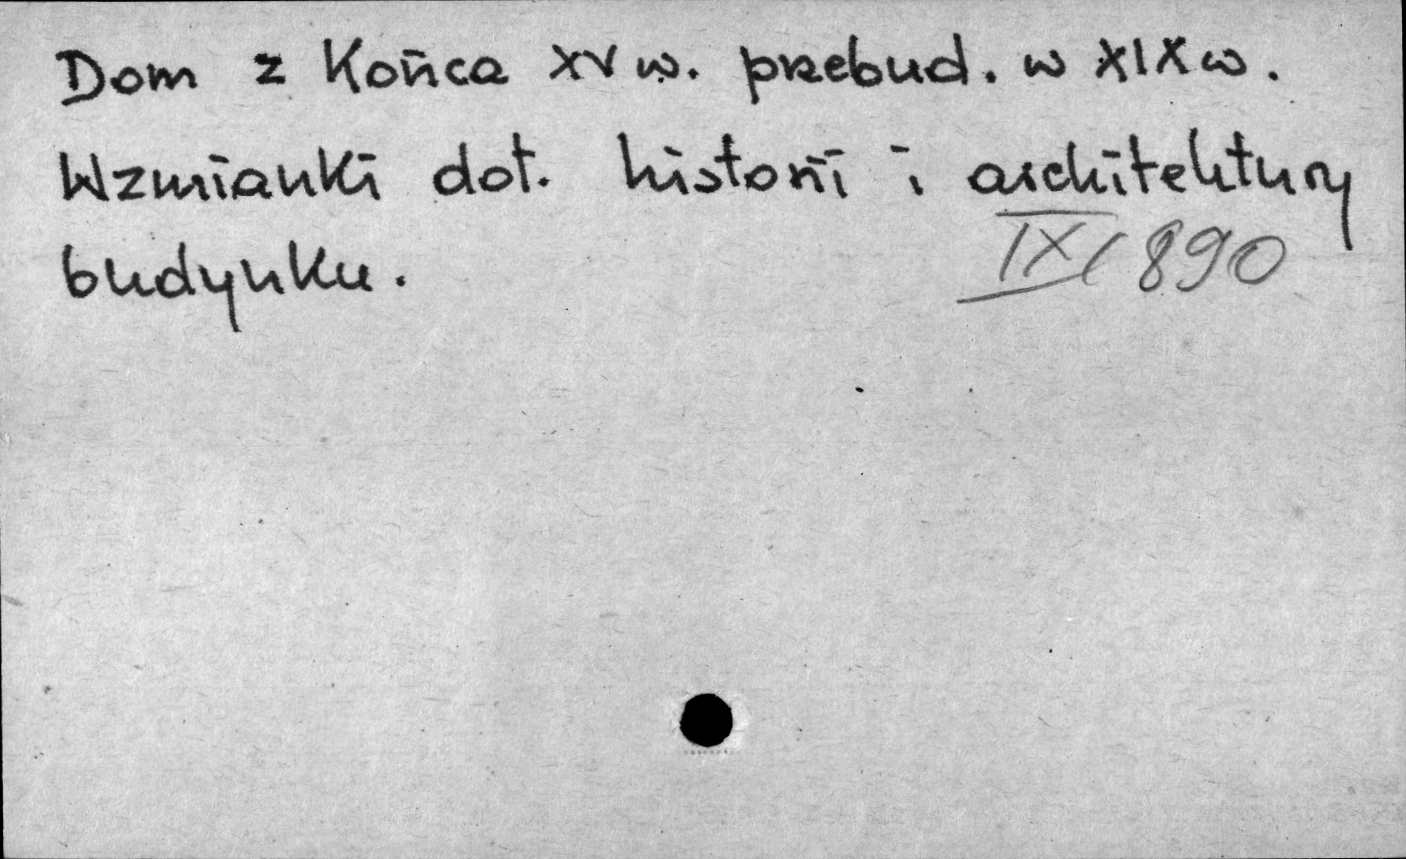 Dom z Końca XV w. przebud. w XIX w.
Wzmianki dot. historii i architektury
budynku.
IX/890